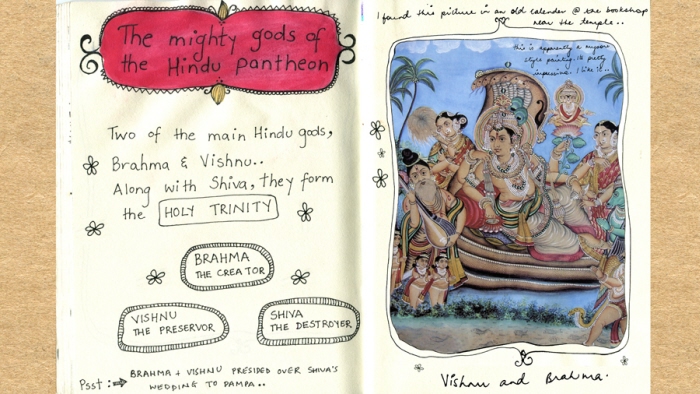 The mighty gods of
the Hindu pantheon
Two of the main Hindu gods,
Brahma & Vishnu..
Along with Shiva, they form
the HOLY TRINITY
BRAHMA
THE CREATOR
VISHNU
THE PRESERVOR
SHIVA
THE DESTROYER
Psst: BRAHMA + VISHNU PRESIDED OVER SHIVA'S
WEDDING TO PAMPA..
I found this picture in an old calender @ the bookshop
near the temple..
this is apparently a mysore
style painting. Its pretty
impressive. I like it..
Vishnu and Brahma.